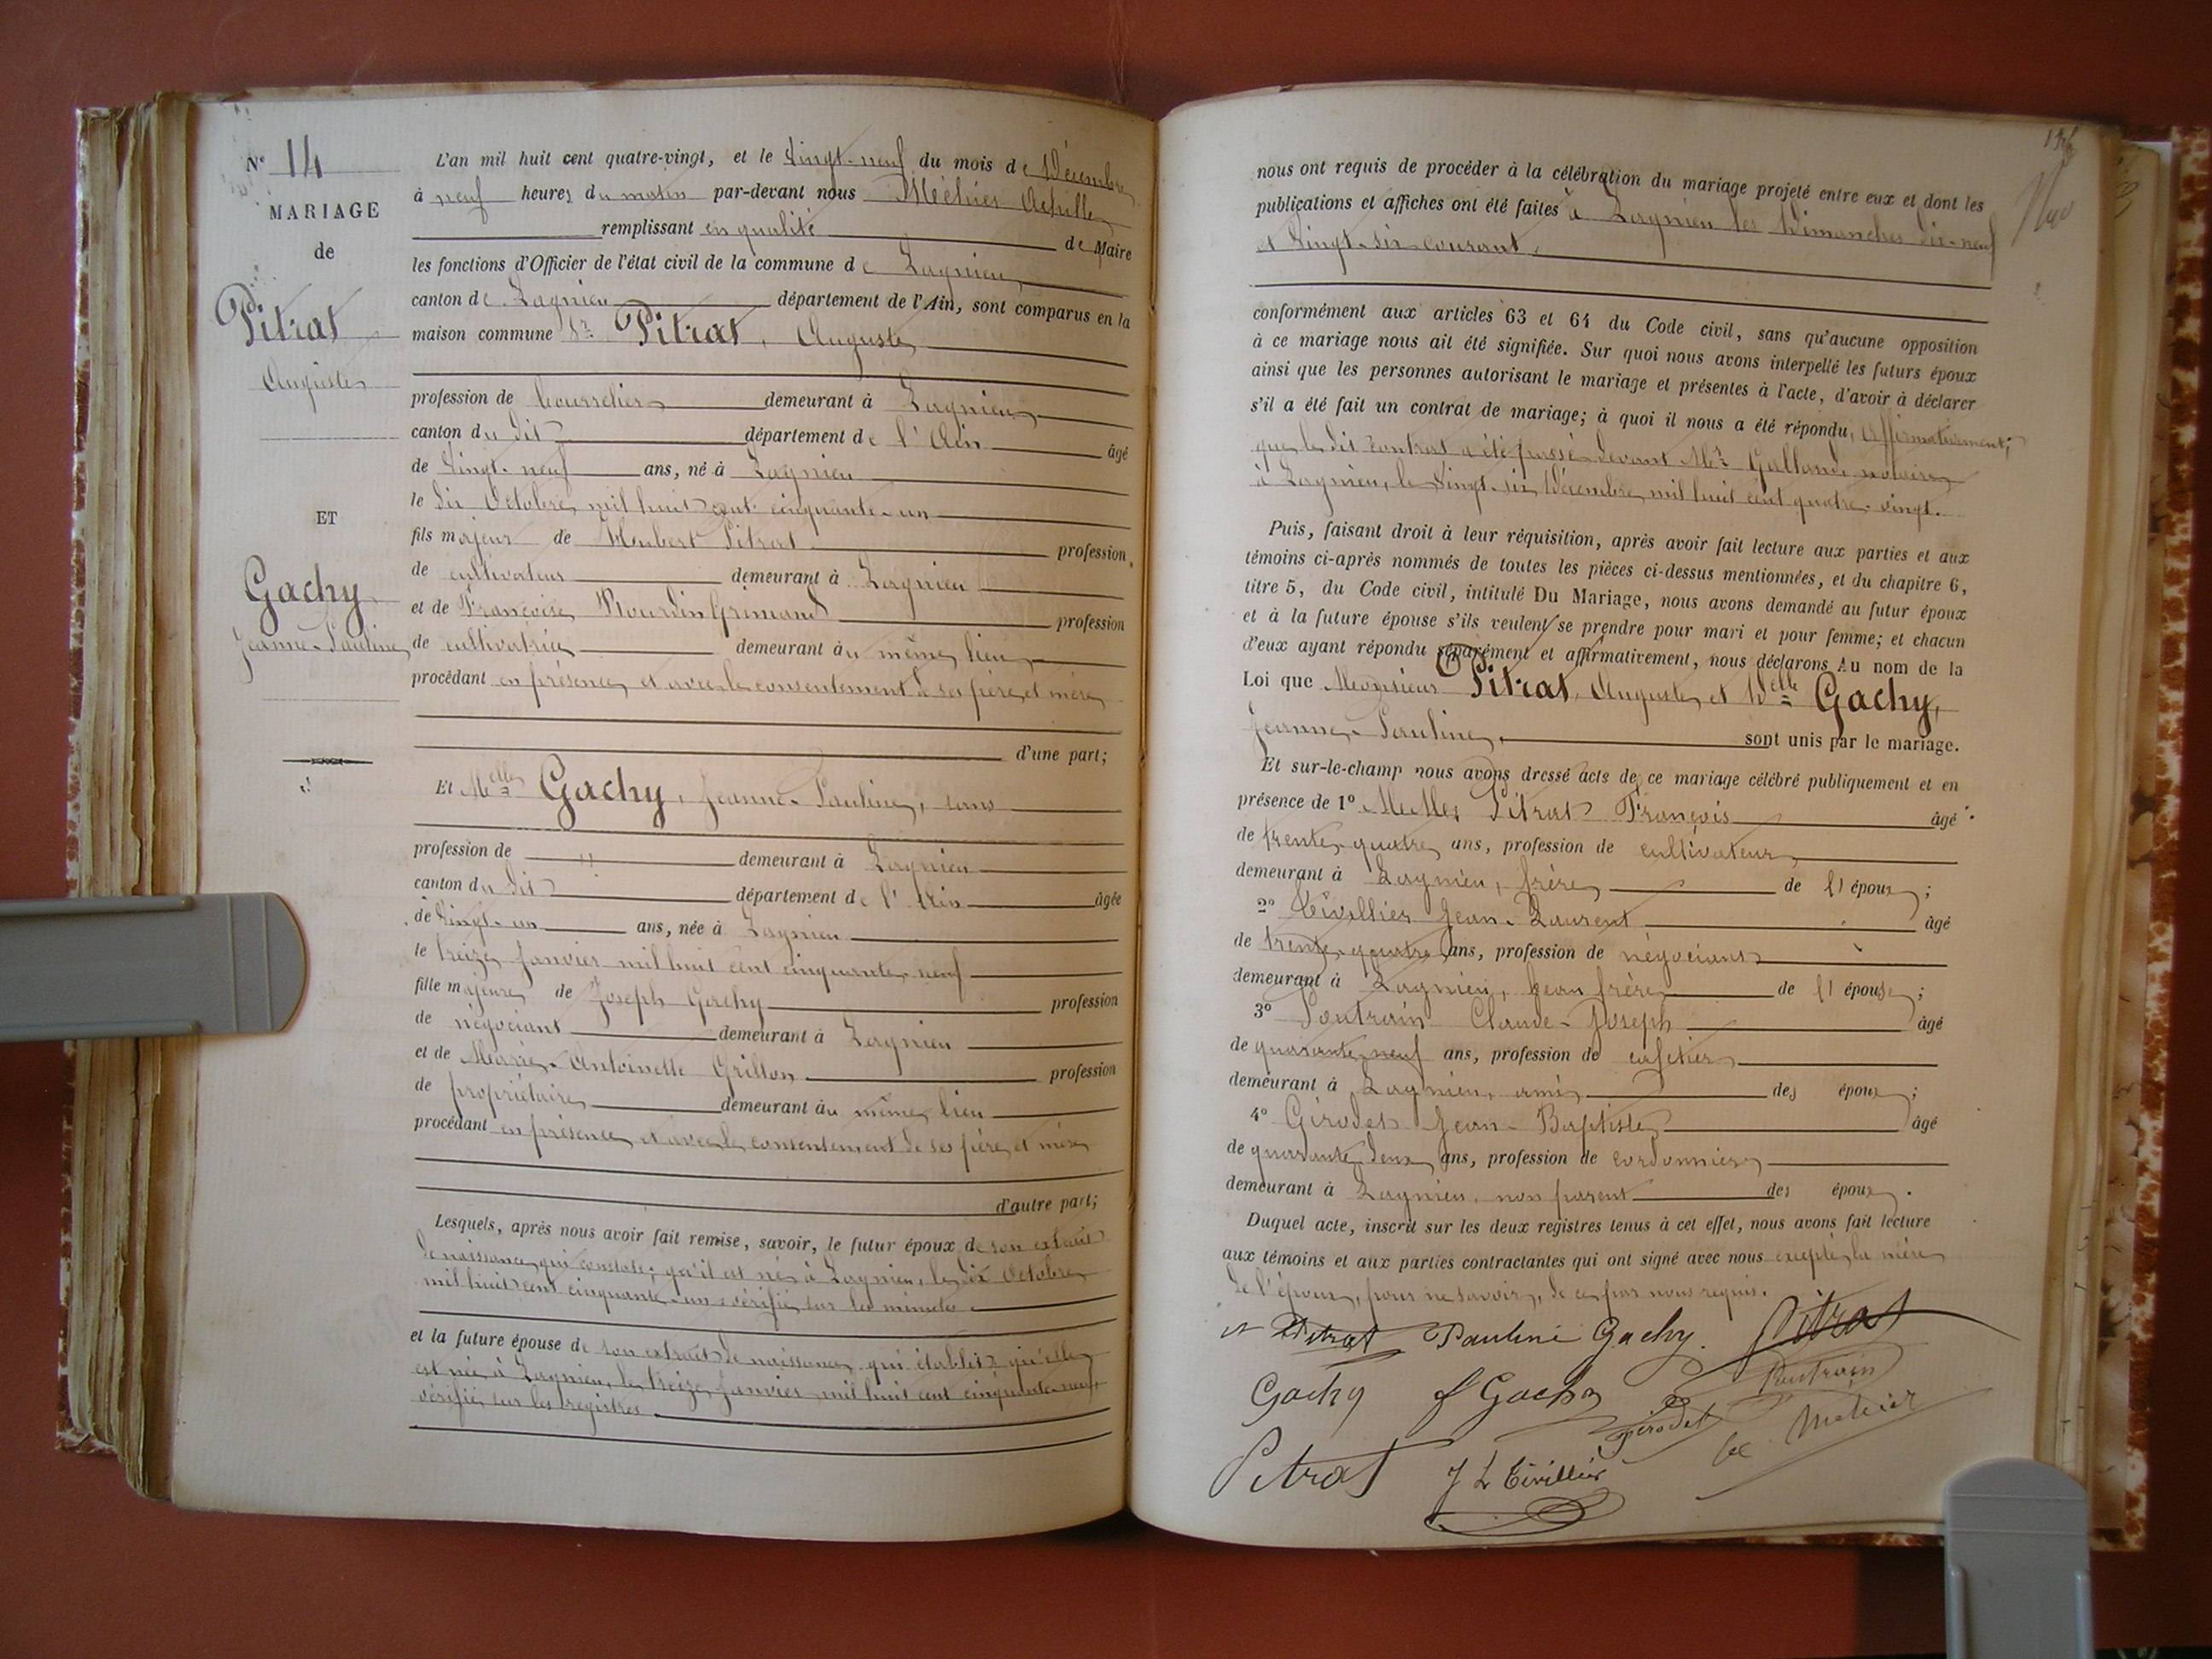 N° 14
MARIAGE
de
Pitrat
Auguste
ET
Gachy
Jeanne-Pauline
L'an mil huit cent quatre-vingt, et le vingt-neuf du mois de Décembre
à neuf heures du matin par-devant nous Méhier Achille
remplissant en qualité de Maire
les fonctions d'Officier de l'état civil de la commune de Lagnieu,
canton de Lagnieu département de l'Ain, sont comparus en la
maison commune Sr Pitrat, Auguste
profession de bourrelier demeurant à Lagnieu
canton du dit département de l'Ain âgé
de vingt-neuf ans, né à Lagnieu
le dix Octobre mil huit cent cinquante-un
fils majeur de Humbert Pitrat profession
de cultivateur demeurant à Lagnieu
et de Françoise Bourdin Grimaud profession
de cultivatrice demeurant au même lieu,
procédant en présence et avec le consentement de ses père et mère
d'une part;
Et Melle Gachy, Jeanne-Pauline, sans
profession de " demeurant à Lagnieu
canton du dit département de l'Ain âgée
de vingt-un ans, née à Lagnieu
le treize Janvier mil huit cent cinquante-neuf
fille majeure de Joseph Gachy profession
de négociant demeurant à Lagnieu
et de Marie-Antoinette Grillon profession
de propriétaire demeurant au même lieu
procédant en présence et avec le consentement de ses père et mère
d'autre part;
Lesquels, après nous avoir fait remise, savoir, le futur époux de son extrait
de naissance qui constate; qu'il est né à Lagnieu, le dix Octobre
mil huit cent cinquante-un vérifié sur les minutes.
et la future épouse de son extrait de naissance qui établit qu'elle
est née à Lagnieu, le treize Janvier mil huit cent cinquante-neuf,
vérifié sur les registres.
136
nous ont requis de procéder à la célébration du mariage projeté entre eux et dont les
publications et affiches ont été faites à Lagnieu les Dimanches dix-neuf
et vingt-six courant,
conformément aux articles 63 et 64 du Code civil, sans qu'aucune opposition
à ce mariage nous ait été signifiée. Sur quoi nous avons interpellé les futurs époux
ainsi que les personnes autorisant le mariage et présentes à l'acte, d'avoir à déclarer
s'il a été fait un contrat de mariage; à quoi il nous a été répondu, affirmativement;
que le dit contrat a été passé devant Me Galland, notaire
à Lagnieu, le vingt-six Décembre mil huit cent quatre-vingt.
Puis, faisant droit à leur réquisition, après avoir fait lecture aux parties et aux
témoins ci-après nommés de toutes les pièces ci-dessus mentionnées, et du chapitre 6,
titre 5, du Code civil, intitulé Du Mariage, nous avons demandé au futur époux
et à la future épouse s'ils veulent se prendre pour mari et pour femme; et chacun
d'eux ayant répondu séparément et affirmativement, nous déclarons Au nom de la
Loi que Monsieur Pitrat, Auguste et Delle Gachy,
Jeanne-Pauline, sont unis par le mariage.
Et sur-le-champ nous avons dressé acte de ce mariage célébré publiquement et en
présence de 1° M.M. Pitrat François âgé
de trente-quatre ans, profession de cultivateur
demeurant à Lagnieu, frère de l'époux;
2° Tivillier Jean-Laurent âgé
de trente-quatre ans, profession de négociant
demeurant à Lagnieu, beau frère de l'épouse;
3° Poutrain Claude-Joseph âgé
de quarante-neuf ans, profession de cafetier
demeurant à Lagnieu, ami des époux;
4° Girodet Jean-Baptiste âgé
de quarante-deux ans, profession de cordonnier
demeurant à Lagnieu, non parent des époux.
Duquel acte, inscrit sur les deux registres tenus à cet effet, nous avons fait lecture
aux témoins et aux parties contractantes qui ont signé avec nous excepté la mère
de l'époux, pour ne savoir, de ce par nous requis.
Pitrat Pauline Gachy Pitrat
Gachy f Gachy Girodet Poutrain
Pitrat J L Tivillier Méhier